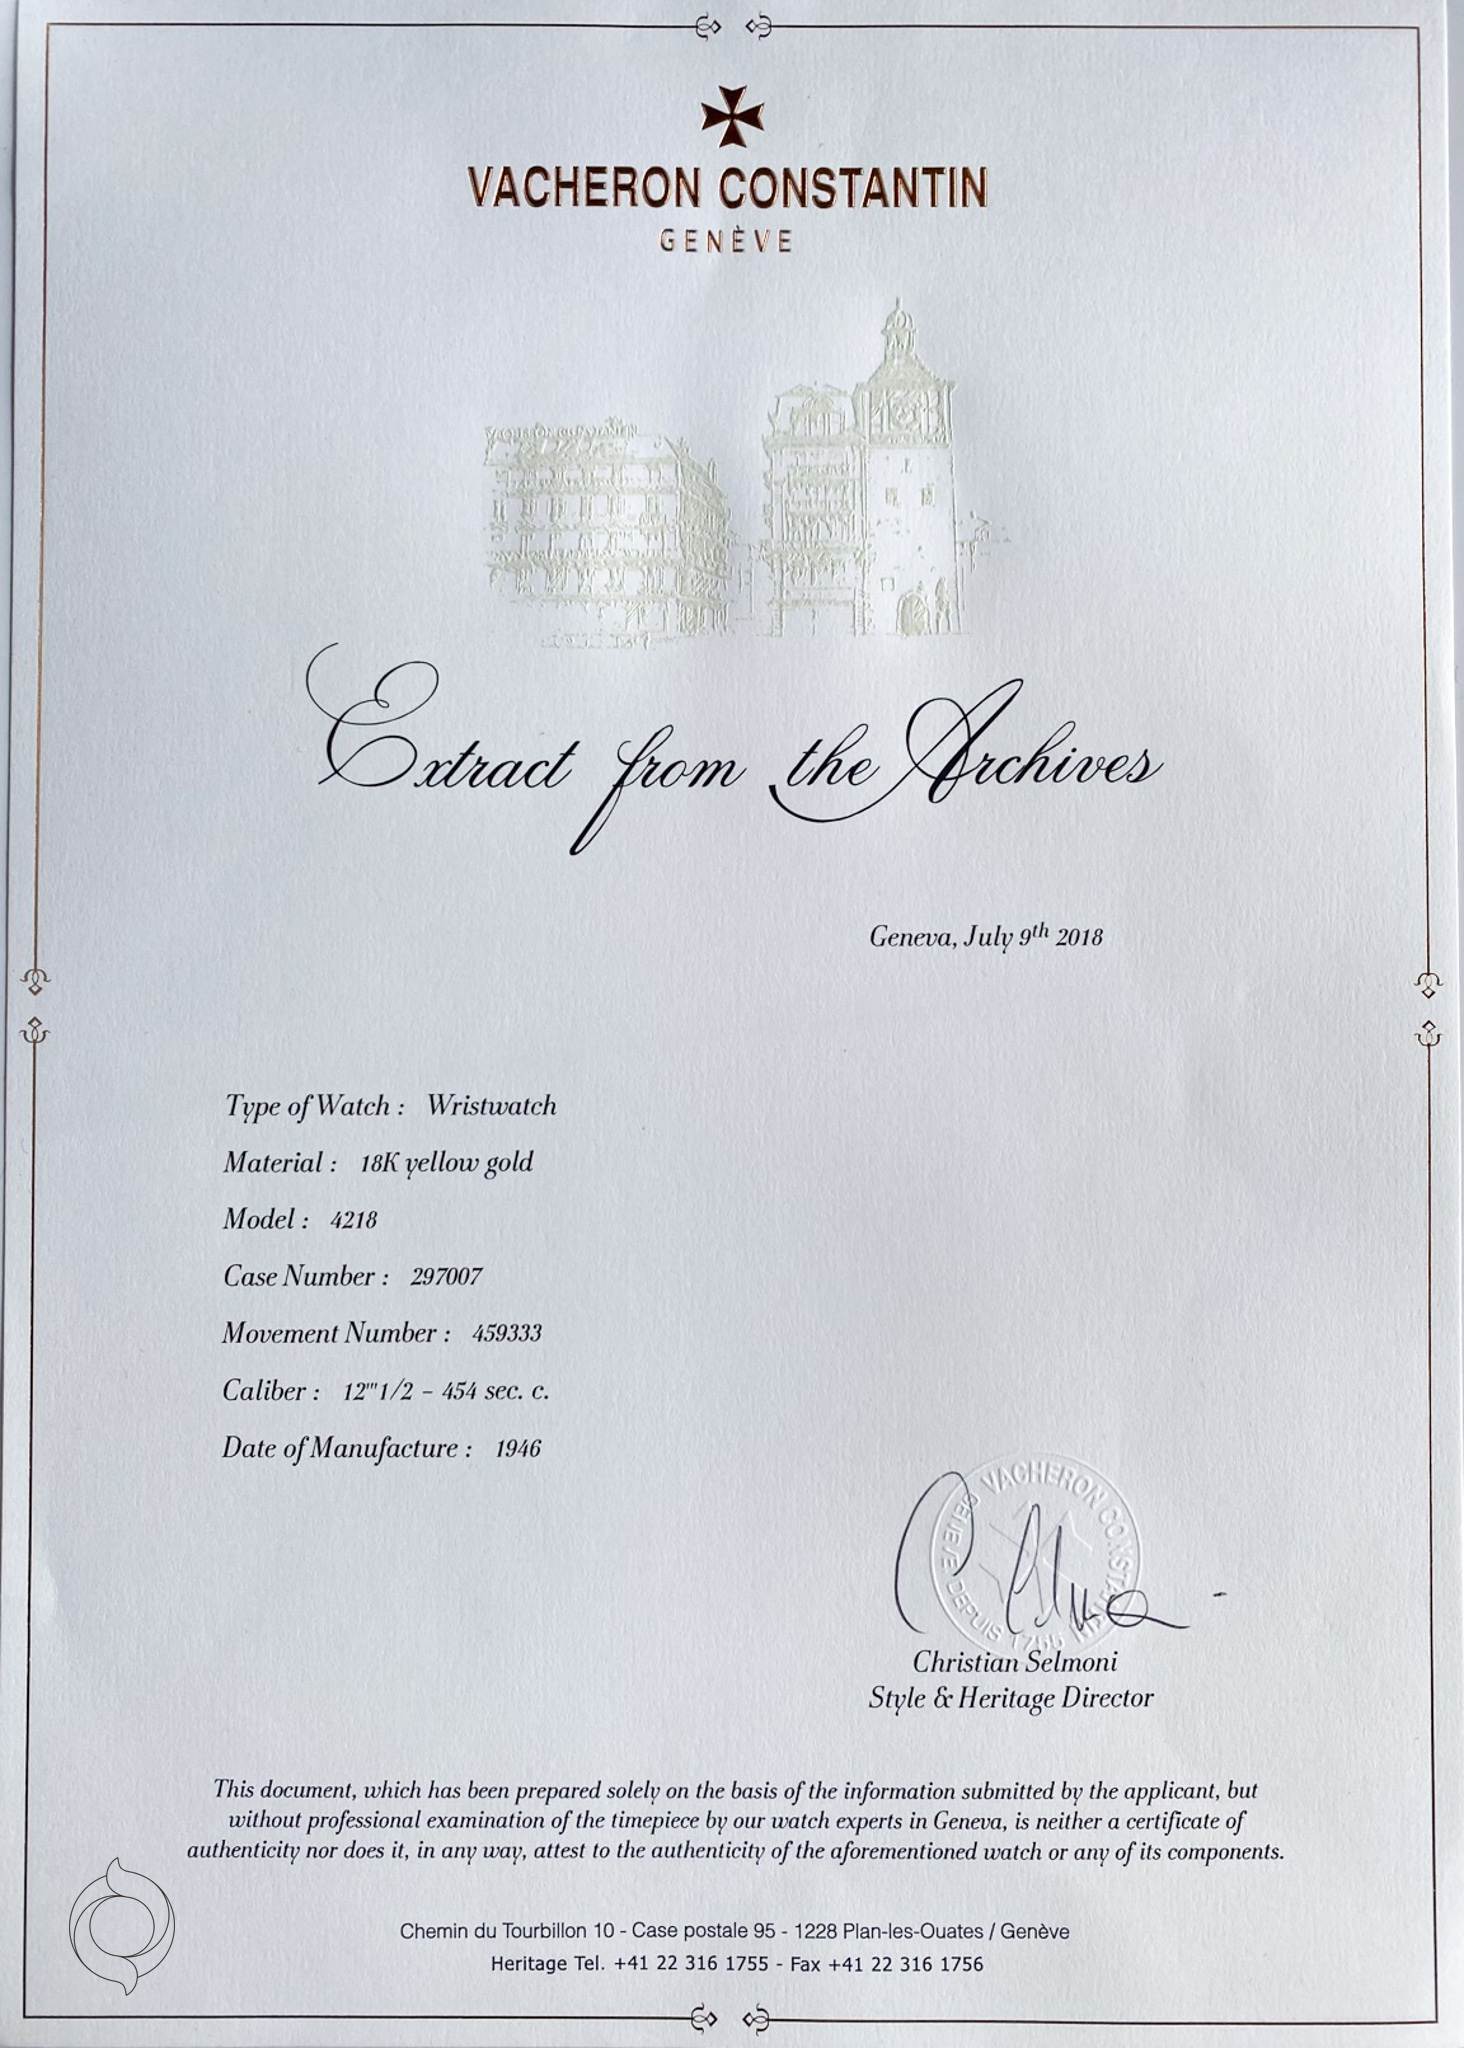 VACHERON CONSTANTIN
GENÈVE
VACHERON CONSTANTIN
Extract from the Archives
Geneva, July 9th 2018
Type of Watch : Wristwatch
Material : 18K yellow gold
Model : 4218
Case Number : 297007
Movement Number : 459333
Caliber : 12'''1/2 – 454 sec. c.
Date of Manufacture : 1946
VACHERON CONSTANTIN GENEVE DEPUIS 1755
Christian Selmoni
Style & Heritage Director
This document, which has been prepared solely on the basis of the information submitted by the applicant, but
without professional examination of the timepiece by our watch experts in Geneva, is neither a certificate of
authenticity nor does it, in any way, attest to the authenticity of the aforementioned watch or any of its components.
Chemin du Tourbillon 10 - Case postale 95 - 1228 Plan-les-Ouates / Genève
Heritage Tel. +41 22 316 1755 - Fax +41 22 316 1756